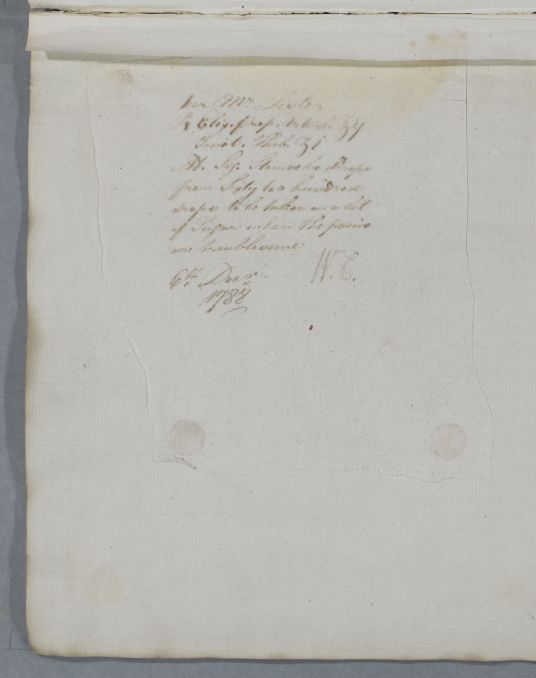 For Mr.
℞ Elix. ʒij
Tinct. Theb. ʒi
M. Sig. Stomach Drops
from Sixty to a hundred
drops to be taken on a bit
of Sugar when the pains
are troublesome
6th. Decr. W. C.
1788